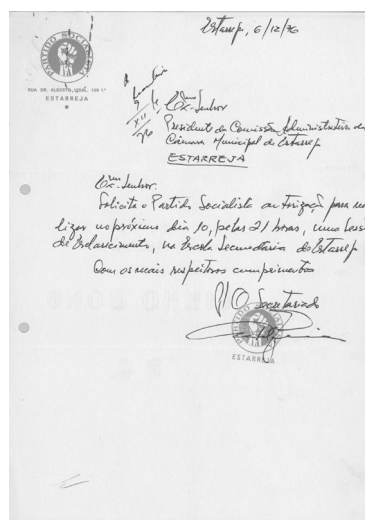 PARTIDO SOCIALISTA
RUA DR. ALBERTO VIDAL, 130 1º
ESTARREJA
Estarreja, 6/12/76
9
XII
76
Exmo Senhor
Presidente da Comissão Administrativa da
Câmara Municipal de Estarreja
ESTARREJA
Exmo Senhor.
Solicita o Partido Socialista autorização para rea
lizar no próximo dia 10, pelas 21 horas, uma Sess
de Esclarecimento, na Escola Secundária de Estarreja
Com os mais respeitosos cumprimentos
P/ O Secretariado
PARTIDO SOCIALISTA
ESTARREJA